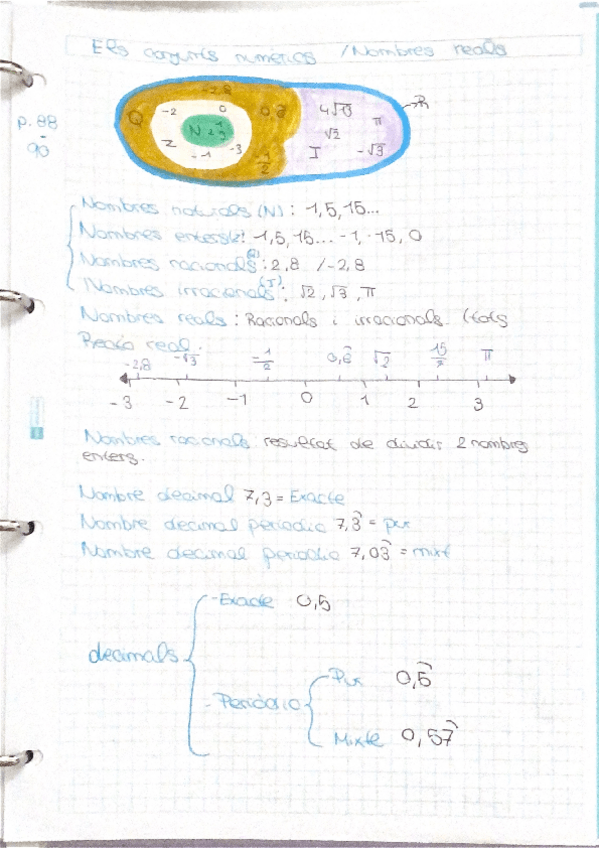 Els conjunts numèrics / Nombres reals
P. 88
-
90
Q
-2,8
-2
0
0,6̂
N 2 1 3
Z
-1
-3
-1/2
4√13
π
√2
I
-√3
R
Nombres naturals (N) : 1, 5, 15...
Nombres enters (Z): 1, 5, 15... -1, -15, 0
Nombres racionals (Q) : 2,8 / -2,8
Nombres irracionals (I) : √2, √3, π
Nombres reals : Racionals i irracionals. (tots
Recta real:
-2,8 -√3 -1/2 0,6̂ √2 15/2 π
-3 -2 -1 0 1 2 3
Nombres racionals: resultat de dividir 2 nombres
enters.
Nombre decimal 7,3 = Exacte
Nombre decimal periòdic 7,3̂ = pur
Nombre decimal periòdic 7,03̂ = mixt
decimals
- Exacte 0,5
- Periòdic
Pur 0,6̂
Mixte 0,57̂